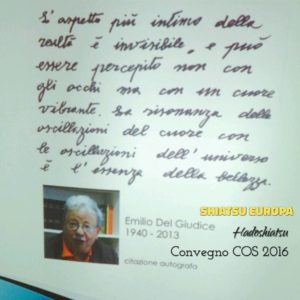 L'aspetto più intimo della
realtà è invisibile, e può
essere percepito non con
gli occhi ma con un cuore
vibrante. La risonanza delle
oscillazioni del cuore con
le oscillazioni dell'universo
è l'essenza della bellezza.
Emilio Del Giudice
1940 - 2013
citazione autografa
SHIATSU EUROPA
Hadoshiatsu
Convegno COS 2016